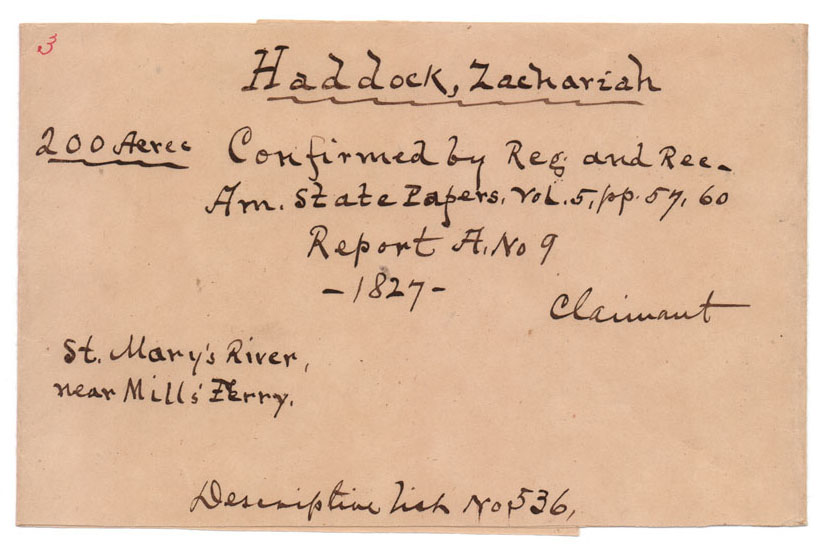 3
Haddock, Zachariah
200 Acres
Confirmed by Reg. and Rec.
Am. State Papers. Vol. 5, pp. 57, 60
Report A. No 9
- 1827 -
Claimant
St. Mary's River,
near Mills' Ferry.
Descriptive list No 536,